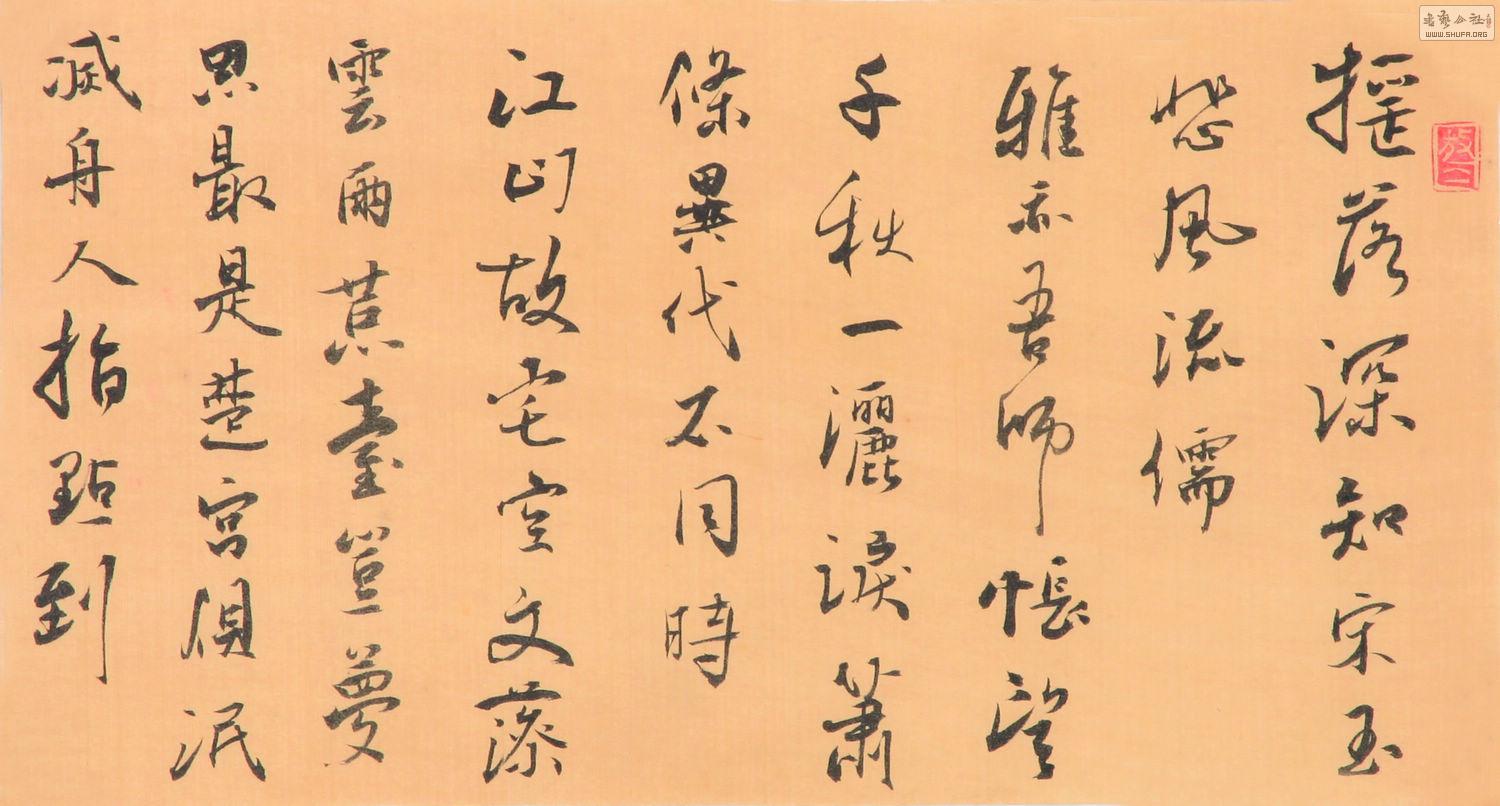 搖落深知宋玉
悲風流儒
雅亦吾師悵望
千秋一灑淚蕭
條異代不同時
江山故宅空文藻
雲雨荒臺豈夢
思最是楚宮俱泯
滅舟人指點到
書藝公社
WWW.SHUFA.ORG